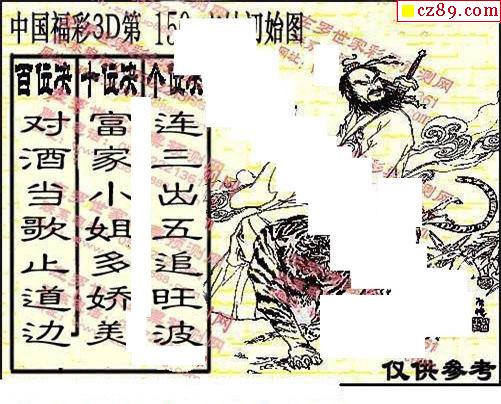 cz89.com
中国福彩3D第 15 始图
百位决
对酒当歌止道边
十位决
富家小姐多娇美
个位决
连三出五追旺波
仅供参考